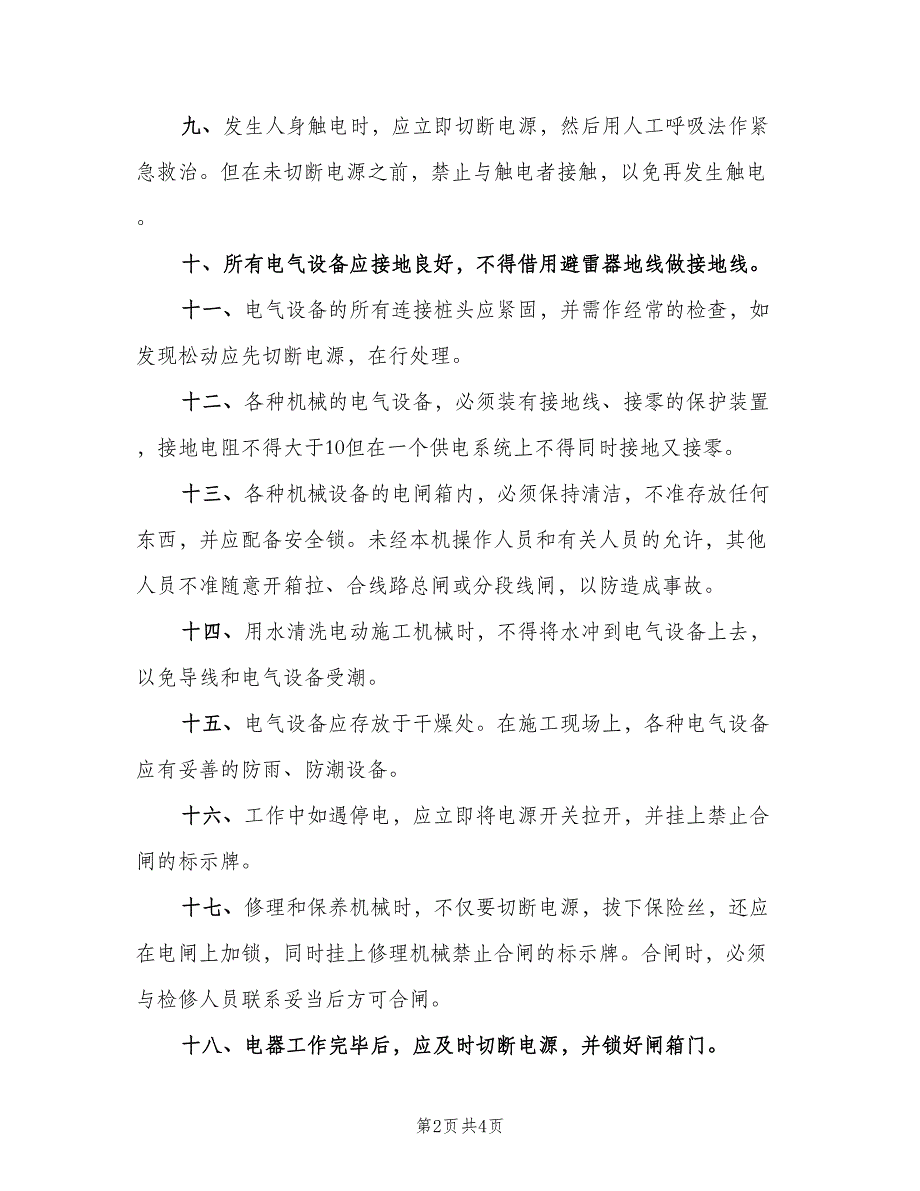 九、发生人身触电时，应立即切断电源，然后用人工呼吸法作紧
急救治。但在未切断电源之前，禁止与触电者接触，以免再发生触电
。
十、所有电气设备应接地良好，不得借用避雷器地线做接地线。
十一、电气设备的所有连接桩头应紧固，并需作经常的检查，如
发现松动应先切断电源，在行处理。
十二、各种机械的电气设备，必须装有接地线、接零的保护装置
，接地电阻不得大于10但在一个供电系统上不得同时接地又接零。
十三、各种机械设备的电闸箱内，必须保持清洁，不准存放任何
东西，并应配备安全锁。未经本机操作人员和有关人员的允许，其他
人员不准随意开箱拉、合线路总闸或分段线闸，以防造成事故。
十四、用水清洗电动施工机械时，不得将水冲到电气设备上去，
以免导线和电气设备受潮。
十五、电气设备应存放于干燥处。在施工现场上，各种电气设备
应有妥善的防雨、防潮设备。
十六、工作中如遇停电，应立即将电源开关拉开，并挂上禁止合
闸的标示牌。
十七、修理和保养机械时，不仅要切断电源，拔下保险丝，还应
在电闸上加锁，同时挂上修理机械禁止合闸的标示牌。合闸时，必须
与检修人员联系妥当后方可合闸。
十八、电器工作完毕后，应及时切断电源，并锁好闸箱门。
第2页共4页